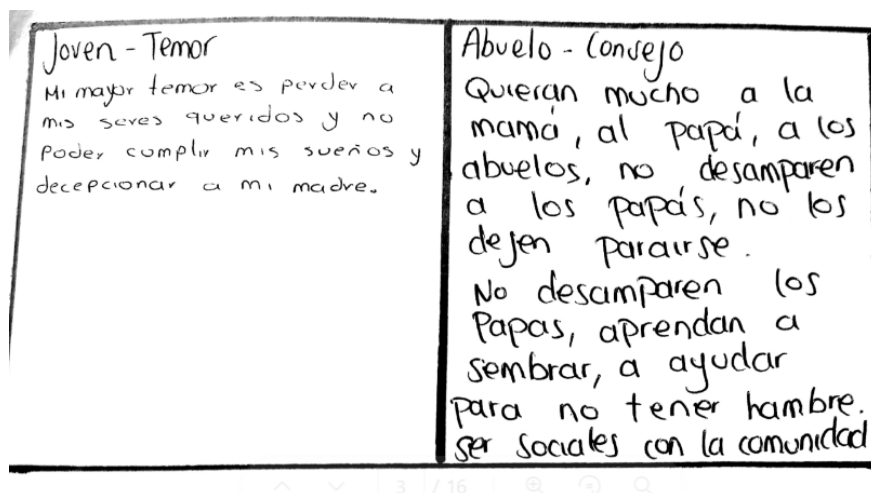 Joven - Temor
Mi mayor temor es perder a
mis seres queridos y no
Poder cumplir mis sueños y
decepcionar a mi madre.
Abuelo - Consejo
Quieran mucho a la
mamá, al papá, a los
abuelos, no desamparen
a los papás, no los
dejen para irse.
No desamparen los
Papas, aprendan a
sembrar, a ayudar
para no tener hambre.
ser sociales con la comunidad
3 / 16